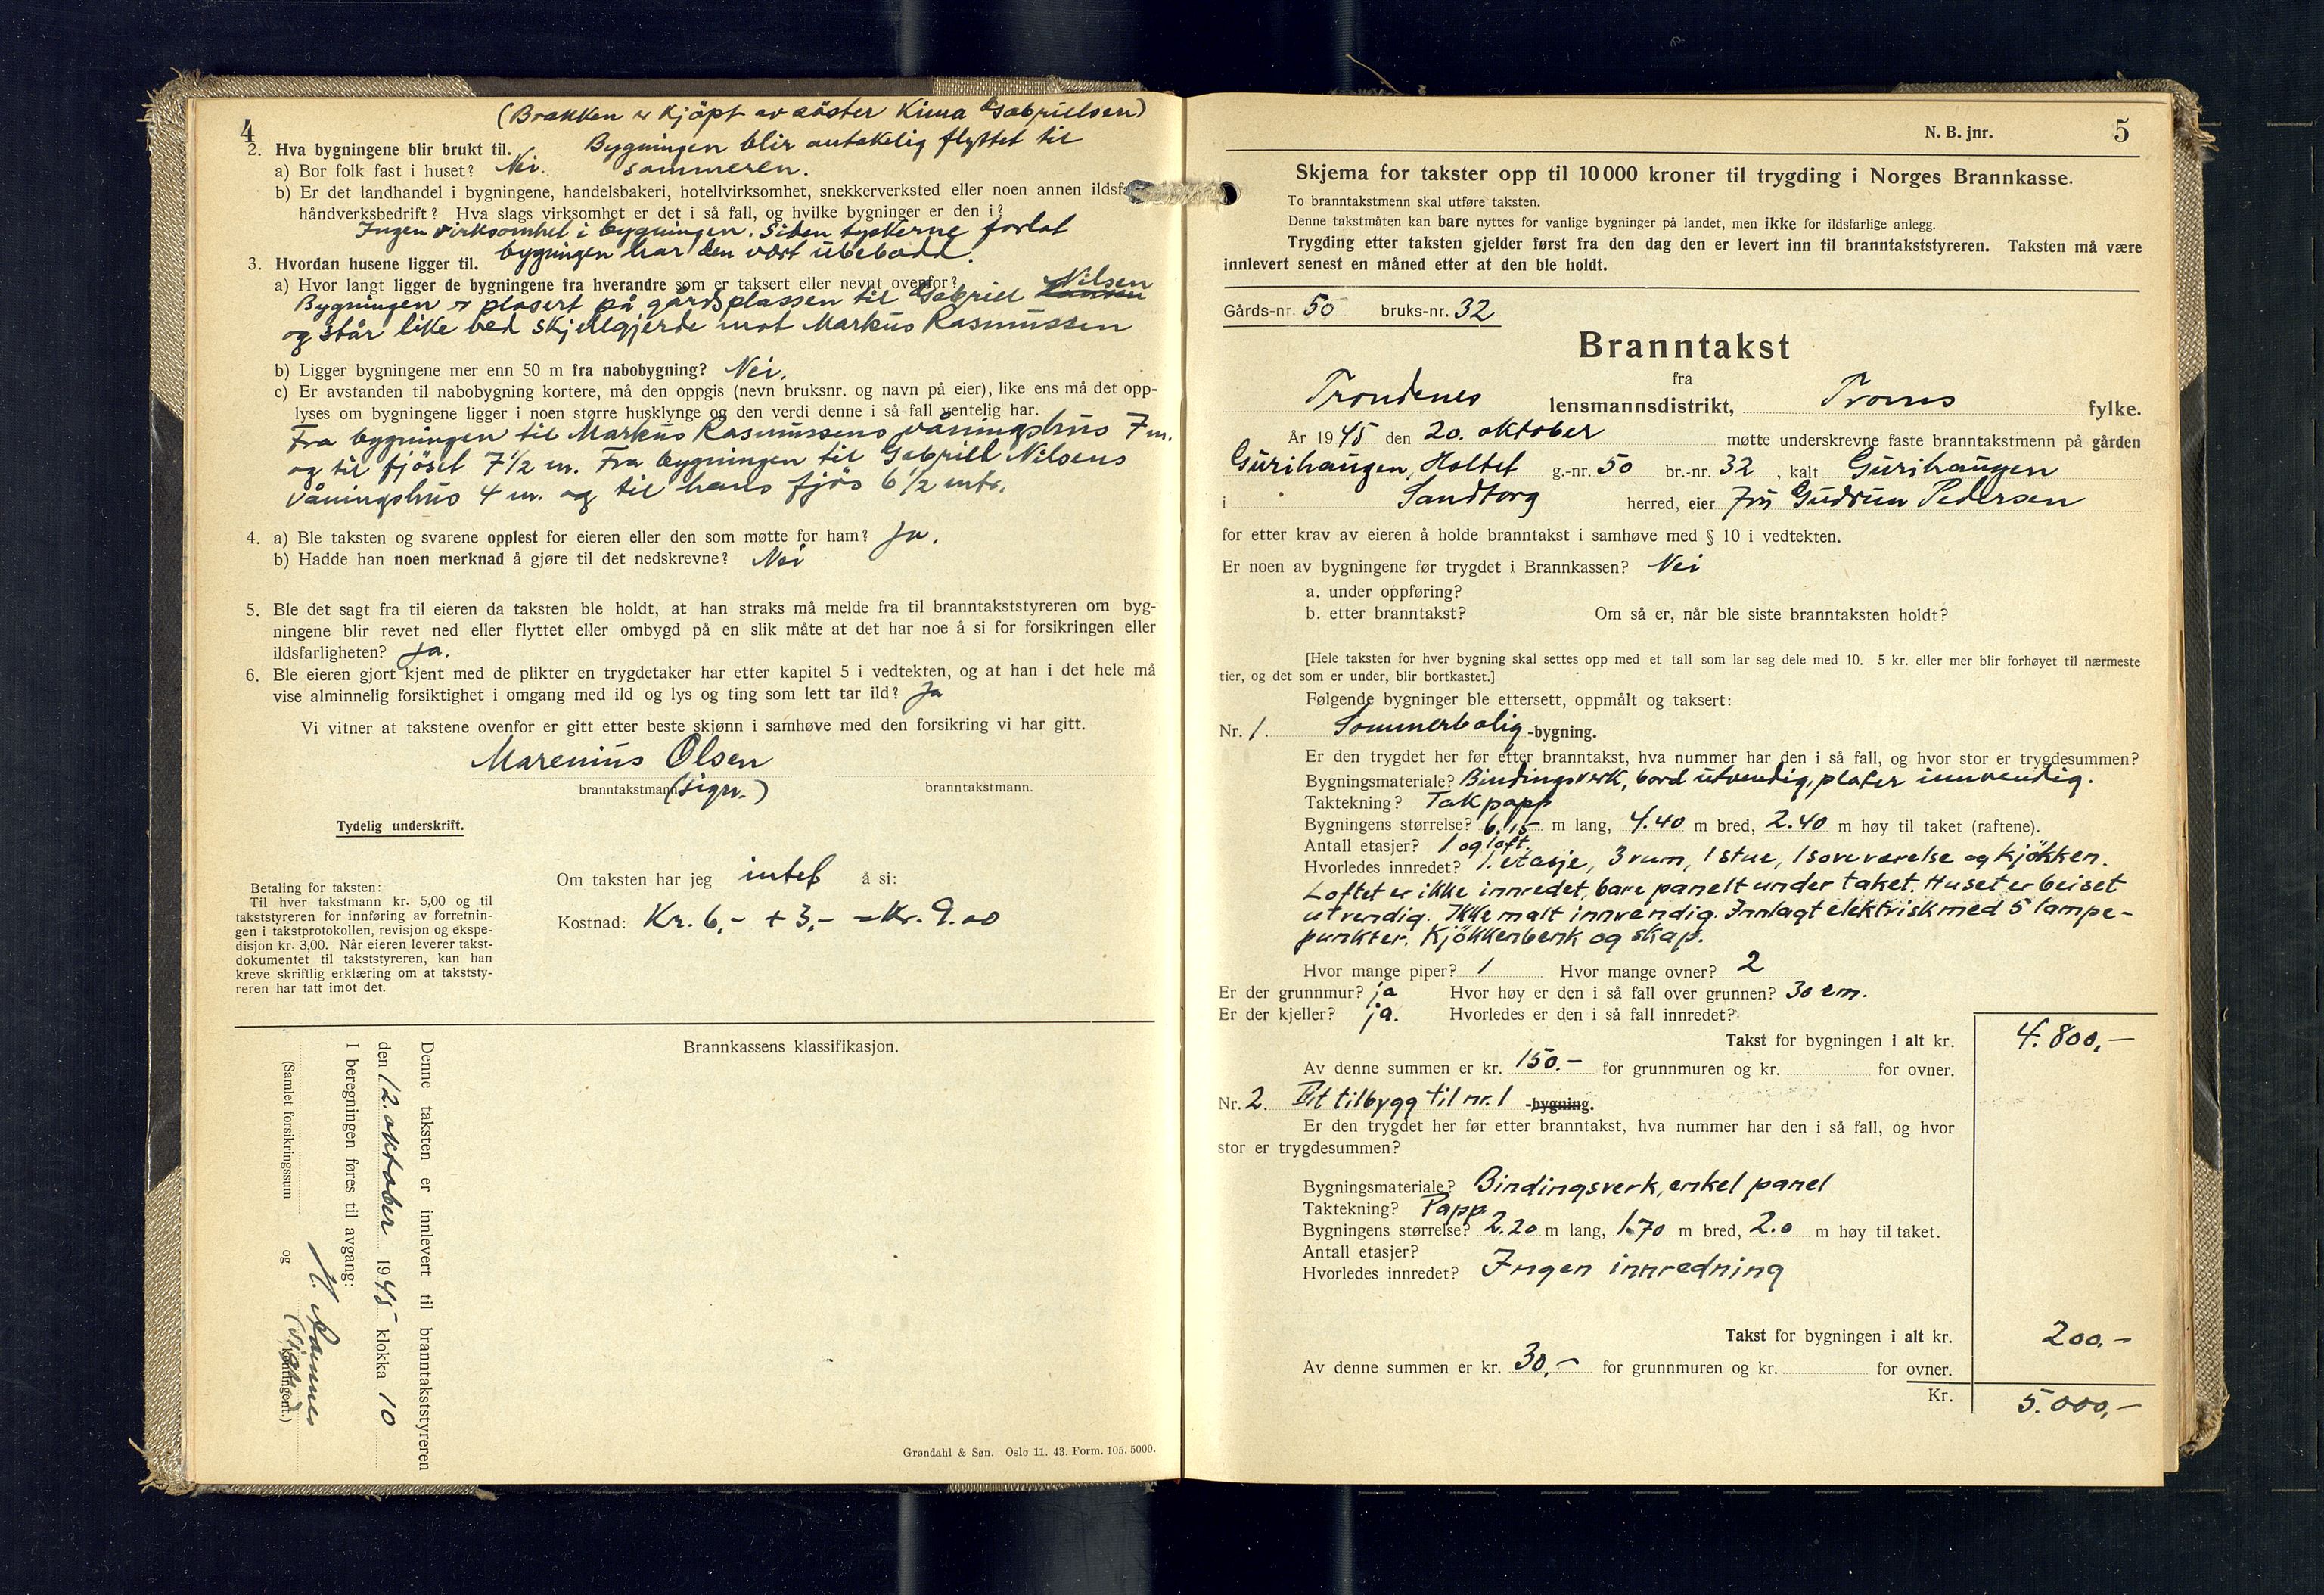 4
(Brakken er kjöpt av söster Kima Gabrielsen)
2. Hva bygningene blir brukt til. Bygningen blir antakelig flyttet til
a) Bor folk fast i huset? Nei. sommeren.
b) Er det landhandel i bygningene, handelsbakeri, hotellvirksomhet, snekkerverksted eller noen annen ildsfa
håndverksbedrift? Hva slags virksomhet er det i så fall, og hvilke bygninger er den i?
Ingen virksomhet i bygningen. Siden tyskerne forlot
bygningen har den vært ubebodd.
3. Hvordan husene ligger til.
a) Hvor langt ligger de bygningene fra hverandre som er taksert eller nevnt ovenfor?
Bygningen er plasert på gårdsplassen til Gabriel Nilsen
og står like ved skjellgjerde mot Markus Rasmussen
b) Ligger bygningene mer enn 50 m fra nabobygning? Nei.
c) Er avstanden til nabobygning kortere, må den oppgis (nevn bruksnr. og navn på eier), like ens må det opp-
lyses om bygningene ligger i noen større husklynge og den verdi denne i så fall ventelig har.
Fra bygningen til Markus Rasmussens våningshus 7 m.
og til fjöset 7 1/2 m. Fra bygningen til Gabriell Nilsens
våningshus 4 m. og til hans fjös 6 1/2 mtr.
4. a) Ble taksten og svarene opplest for eieren eller den som møtte for ham? Ja.
b) Hadde han noen merknad å gjøre til det nedskrevne? Nei
5. Ble det sagt fra til eieren da taksten ble holdt, at han straks må melde fra til branntakststyreren om byg-
ningene blir revet ned eller flyttet eller ombygd på en slik måte at det har noe å si for forsikringen eller
ildsfarligheten? Ja.
6. Ble eieren gjort kjent med de plikter en trygdetaker har etter kapitel 5 i vedtekten, og at han i det hele må
vise alminnelig forsiktighet i omgang med ild og lys og ting som lett tar ild? Ja
Vi vitner at takstene ovenfor er gitt etter beste skjønn i samhøve med den forsikring vi har gitt.
Marenius Olsen
branntakstmann (sign.) branntakstmann.
Tydelig underskrift.
Betaling for taksten:
Til hver takstmann kr. 5,00 og til
takststyreren for innføring av forretnin-
gen i takstprotokollen, revisjon og ekspe-
disjon kr. 3,00. Når eieren leverer takst-
dokumentet til takststyreren, kan han
kreve skriftlig erklæring om at takststy-
reren har tatt imot det.
Om taksten har jeg intet å si:
Kostnad: Kr. 6,- + 3,- = Kr. 9.00
Denne taksten er innlevert til branntakststyreren
den 12. oktober 1945 klokka 10
I beregningen føres til avgang:
(Samlet forsikringssum og kontingent.)
(sign)
Brannkassens klassifikasjon.
Grøndahl & Søn. Oslo 11. 43. Form. 105. 5000.
N. B. jnr. 5
Skjema for takster opp til 10000 kroner til trygding i Norges Brannkasse.
To branntakstmenn skal utføre taksten.
Denne takstmåten kan bare nyttes for vanlige bygninger på landet, men ikke for ildsfarlige anlegg.
Trygding etter taksten gjelder først fra den dag den er levert inn til branntakststyreren. Taksten må være
innlevert senest en måned etter at den ble holdt.
Gårds-nr. 50 bruks-nr. 32
Branntakst
fra
Trondenes lensmannsdistrikt, Troms fylke.
År 1945 den 20. oktober møtte underskrevne faste branntakstmenn på gården
Gurihaugen, Holtet g.-nr. 50 br.-nr. 32, kalt Gurihaugen
i Sandtorg herred, eier Fru Gudrun Pedersen
for etter krav av eieren å holde branntakst i samhøve med § 10 i vedtekten.
Er noen av bygningene før trygdet i Brannkassen? Nei
a. under oppføring?
b. etter branntakst? Om så er, når ble siste branntaksten holdt?
[Hele taksten for hver bygning skal settes opp med et tall som lar seg dele med 10. 5 kr. eller mer blir forhøyet til nærmeste
tier, og det som er under, blir bortkastet.]
Følgende bygninger ble ettersett, oppmålt og taksert:
Nr. 1. Sommerbolig -bygning.
Er den trygdet her før etter branntakst, hva nummer har den i så fall, og hvor stor er trygdesummen?
Bygningsmateriale? Bindingsverk, bord utvendig, plater innvendig.
Taktekning? Takpapp
Bygningens størrelse? 6.15 m lang, 4.40 m bred, 2.40 m høy til taket (raftene).
Antall etasjer? 1 og loft.
Hvorledes innredet? 1. etasje, 3 rum, 1 stue, 1 soveværelse og kjökken.
Loftet er ikke innredet, bare panelt under taket. Huset er beiset
utvendig. Ikke malt innvendig. Innlagt elektrisk med 5 lampe-
punkter. Kjökkenbenk og skap.
Hvor mange piper? 1 Hvor mange ovner? 2
Er der grunnmur? ja Hvor høy er den i så fall over grunnen? 30 cm.
Er der kjeller? ja. Hvorledes er den i så fall innredet?
Takst for bygningen i alt kr. 4.800,-
Av denne summen er kr. 150.- for grunnmuren og kr. for ovner.
Nr. 2. Et tilbygg til nr. 1 -bygning.
Er den trygdet her før etter branntakst, hva nummer har den i så fall, og hvor
stor er trygdesummen?
Bygningsmateriale? Bindingsverk, enkel panel
Taktekning? Papp
Bygningens størrelse? 2.20 m lang, 1.70 m bred, 2.0 m høy til taket.
Antall etasjer?
Hvorledes innredet? Ingen innredning
Takst for bygningen i alt kr. 200,-
Av denne summen er kr. 30,- for grunnmuren og kr. for ovner.
Kr. 5.000,-